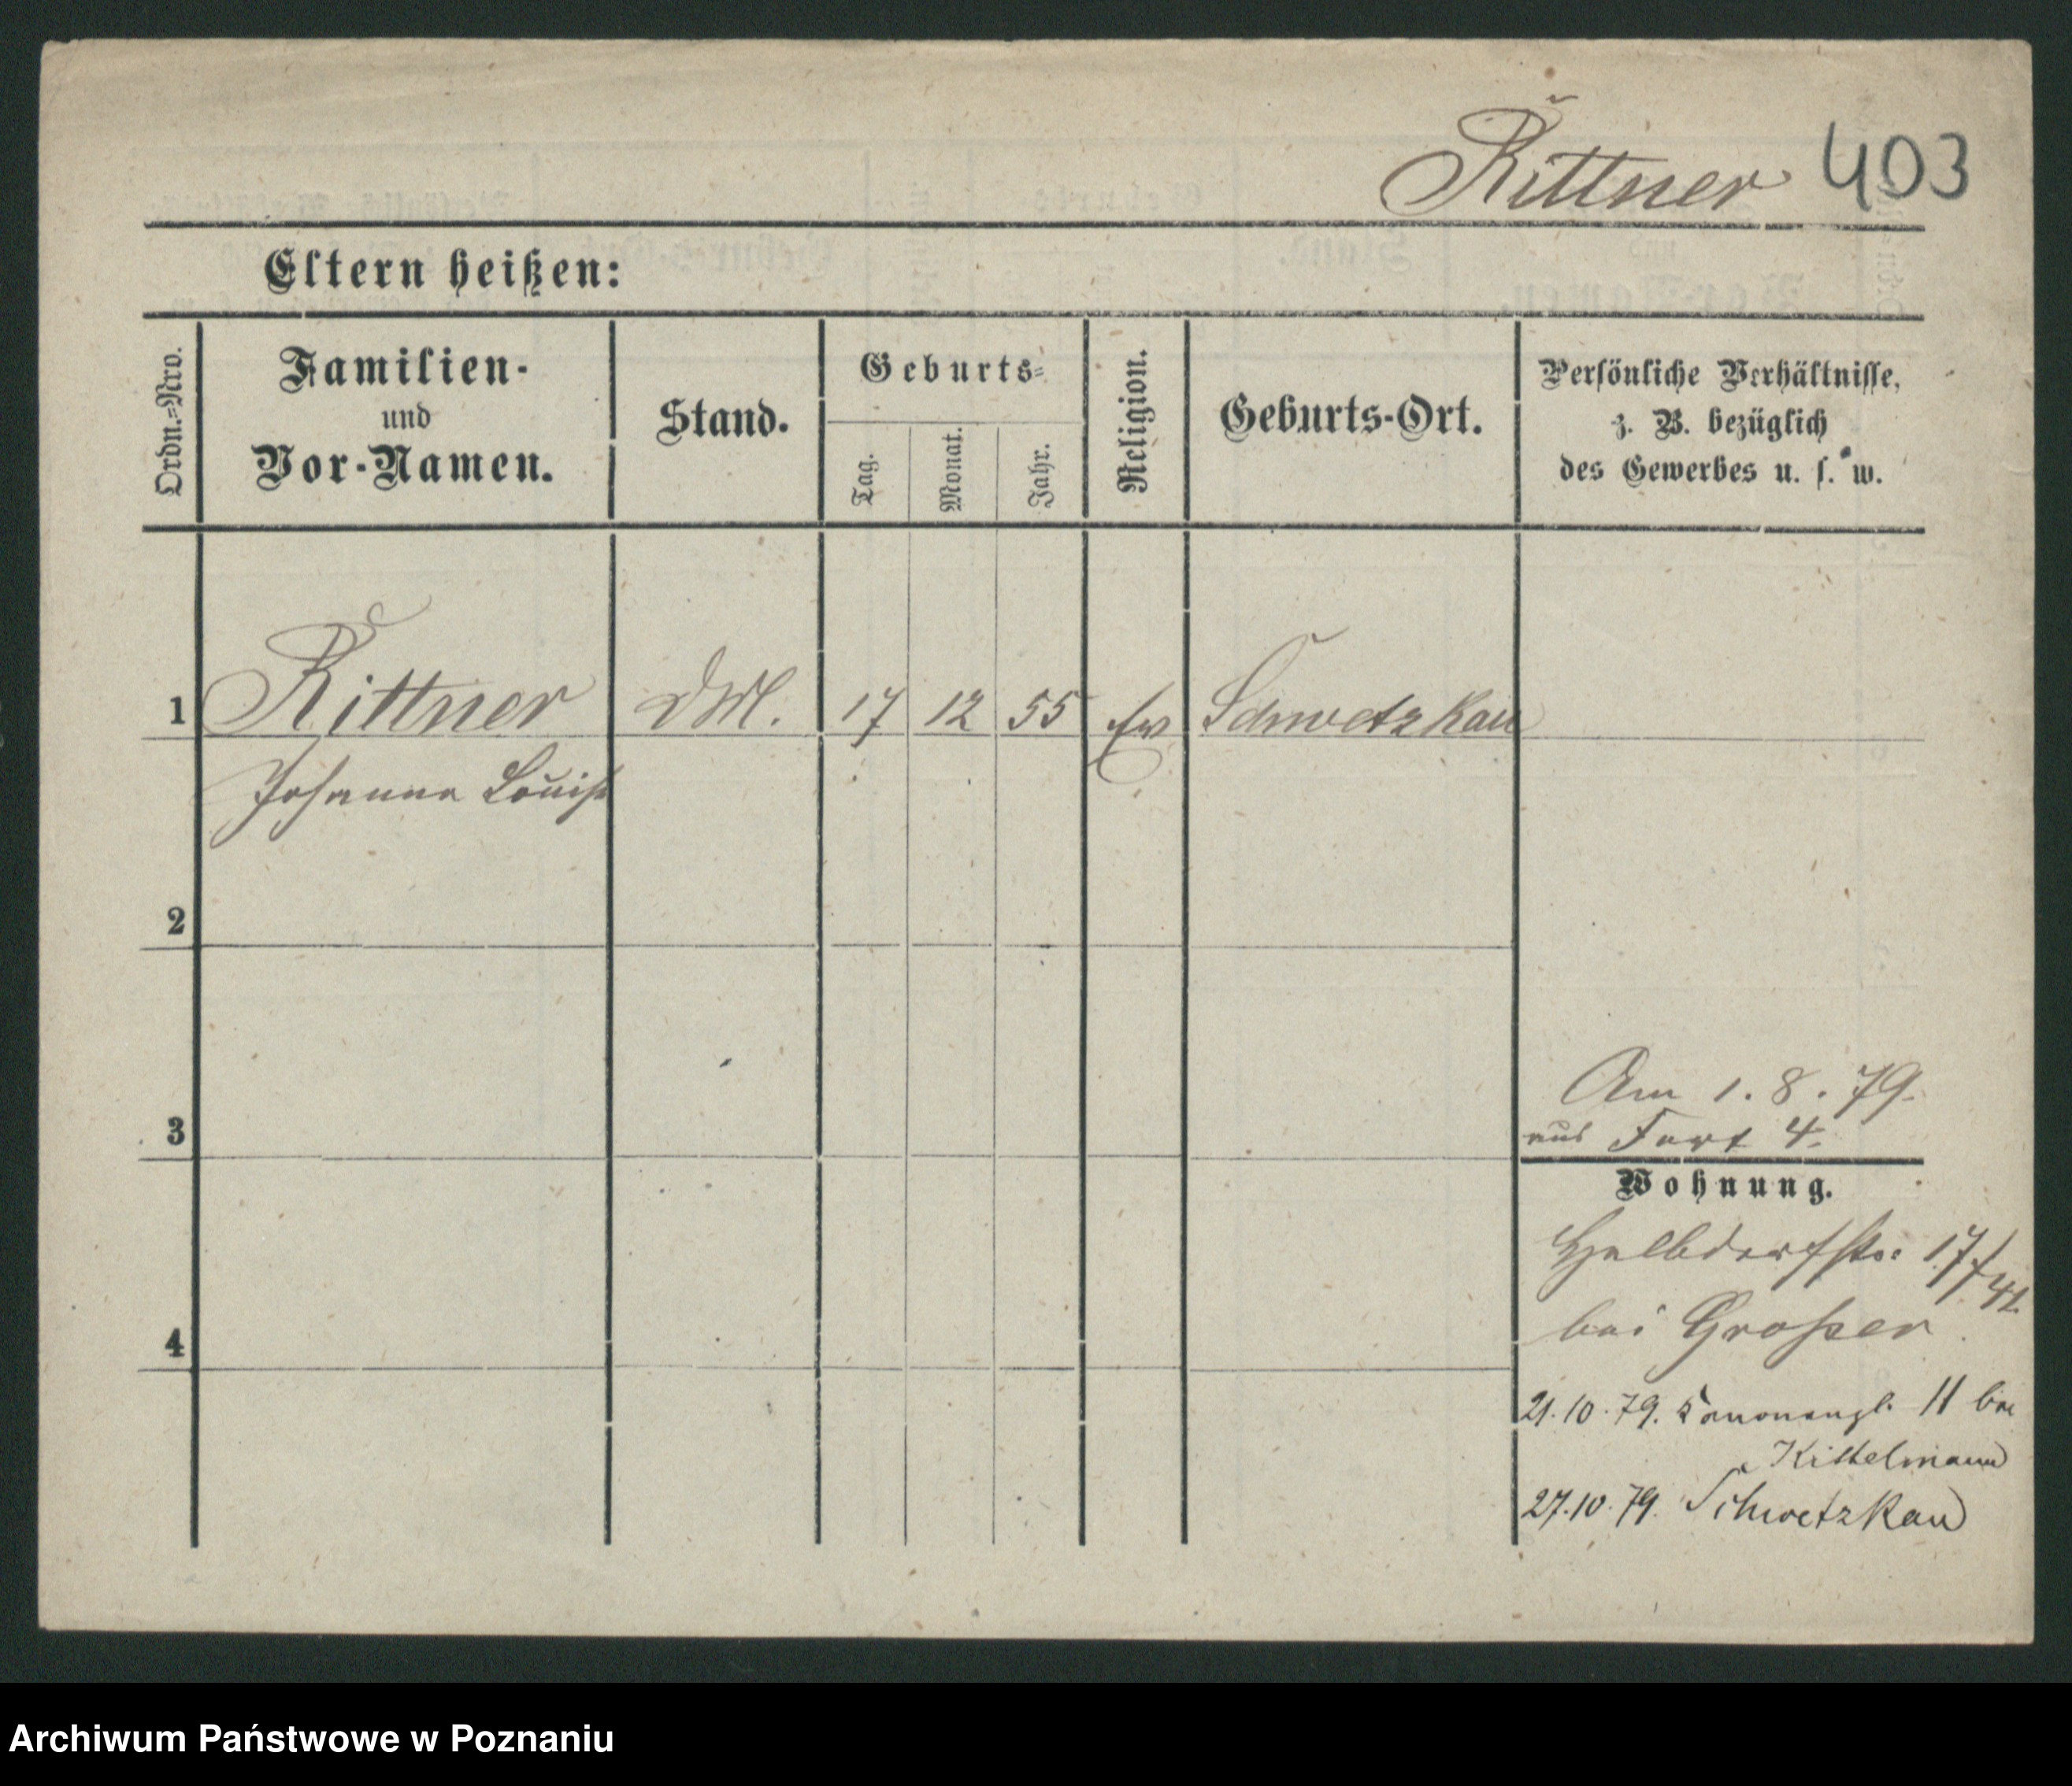 Rittner 403
Eltern heißen:
Ordn.=Nro.
Familien-
und
Vor-Namen.
Stand.
Geburts=
Tag.
Monat.
Jahr.
Religion.
Geburts-Ort.
Persönliche Verhältnisse,
z. B. bezüglich
des Gewerbes u. s. w.
1 Rittner 17 12 55 Ev Schwetzkau
Johanna Louise
2
3
Am 1. 8. 79.
aus Fort 4.
Wohnung.
Halbdorfstr: 17/
bei Grosser
4
21.10.79. Kanonengl. 11 bei
Kittelmann
27.10.79. Schwetzkau
Archiwum Państwowe w Poznaniu